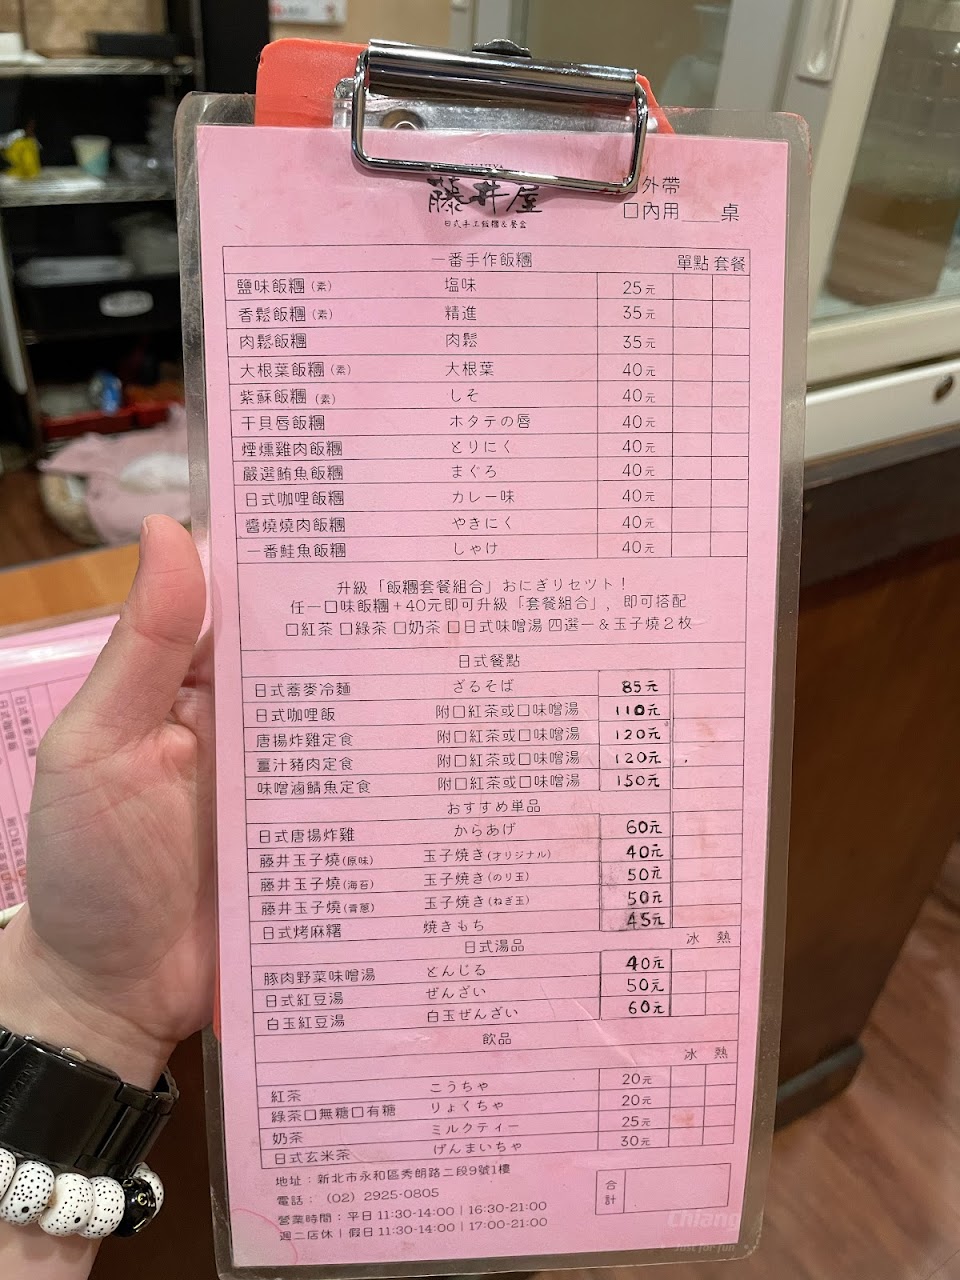 藤井屋
日式手工飯糰&餐盒
外帶
□內用___桌
一番手作飯糰 單點 套餐
鹽味飯糰(素) 塩味 25元
香鬆飯糰(素) 精進 35元
肉鬆飯糰 肉鬆 35元
大根葉飯糰(素) 大根葉 40元
紫蘇飯糰(素) しそ 40元
干貝唇飯糰 ホタテの唇 40元
煙燻雞肉飯糰 とりにく 40元
嚴選鮪魚飯糰 まぐろ 40元
日式咖哩飯糰 カレー味 40元
醬燒燒肉飯糰 やきにく 40元
一番鮭魚飯糰 しゃけ 40元
升級「飯糰套餐組合」おにぎりセット!
任一口味飯糰+40元即可升級「套餐組合」,即可搭配
□紅茶 □綠茶 □奶茶 □日式味噌湯 四選一&玉子燒2枚
日式餐點
日式蕎麥冷麵 ざるそば 85元
日式咖哩飯 附□紅茶或□味噌湯 110元
唐揚炸雞定食 附□紅茶或□味噌湯 120元
薑汁豬肉定食 附□紅茶或□味噌湯 120元
味噌滷鯖魚定食 附□紅茶或□味噌湯 150元
おすすめ単品
日式唐揚炸雞 からあげ 60元
藤井玉子燒(原味) 玉子焼き(オリジナル) 40元
藤井玉子燒(海苔) 玉子焼き(のり玉) 50元
藤井玉子燒(青蔥) 玉子焼き(ねぎ玉) 50元
日式烤麻糬 焼きもち 45元
日式湯品 冰 熱
豚肉野菜味噌湯 とんじる 40元
日式紅豆湯 ぜんざい 50元
白玉紅豆湯 白玉ぜんざい 60元
飲品
冰 熱
紅茶 こうちゃ 20元
綠茶□無糖□有糖 りょくちゃ 20元
奶茶 ミルクティー 25元
日式玄米茶 げんまいちゃ 30元
地址:新北市永和區秀朗路二段9號1樓
電話:(02) 2925-0805
營業時間:平日 11:30-14:00 | 16:30-21:00
週二店休 | 假日 11:30-14:00 | 17:00-21:00
合計
Chiang
Just for fun